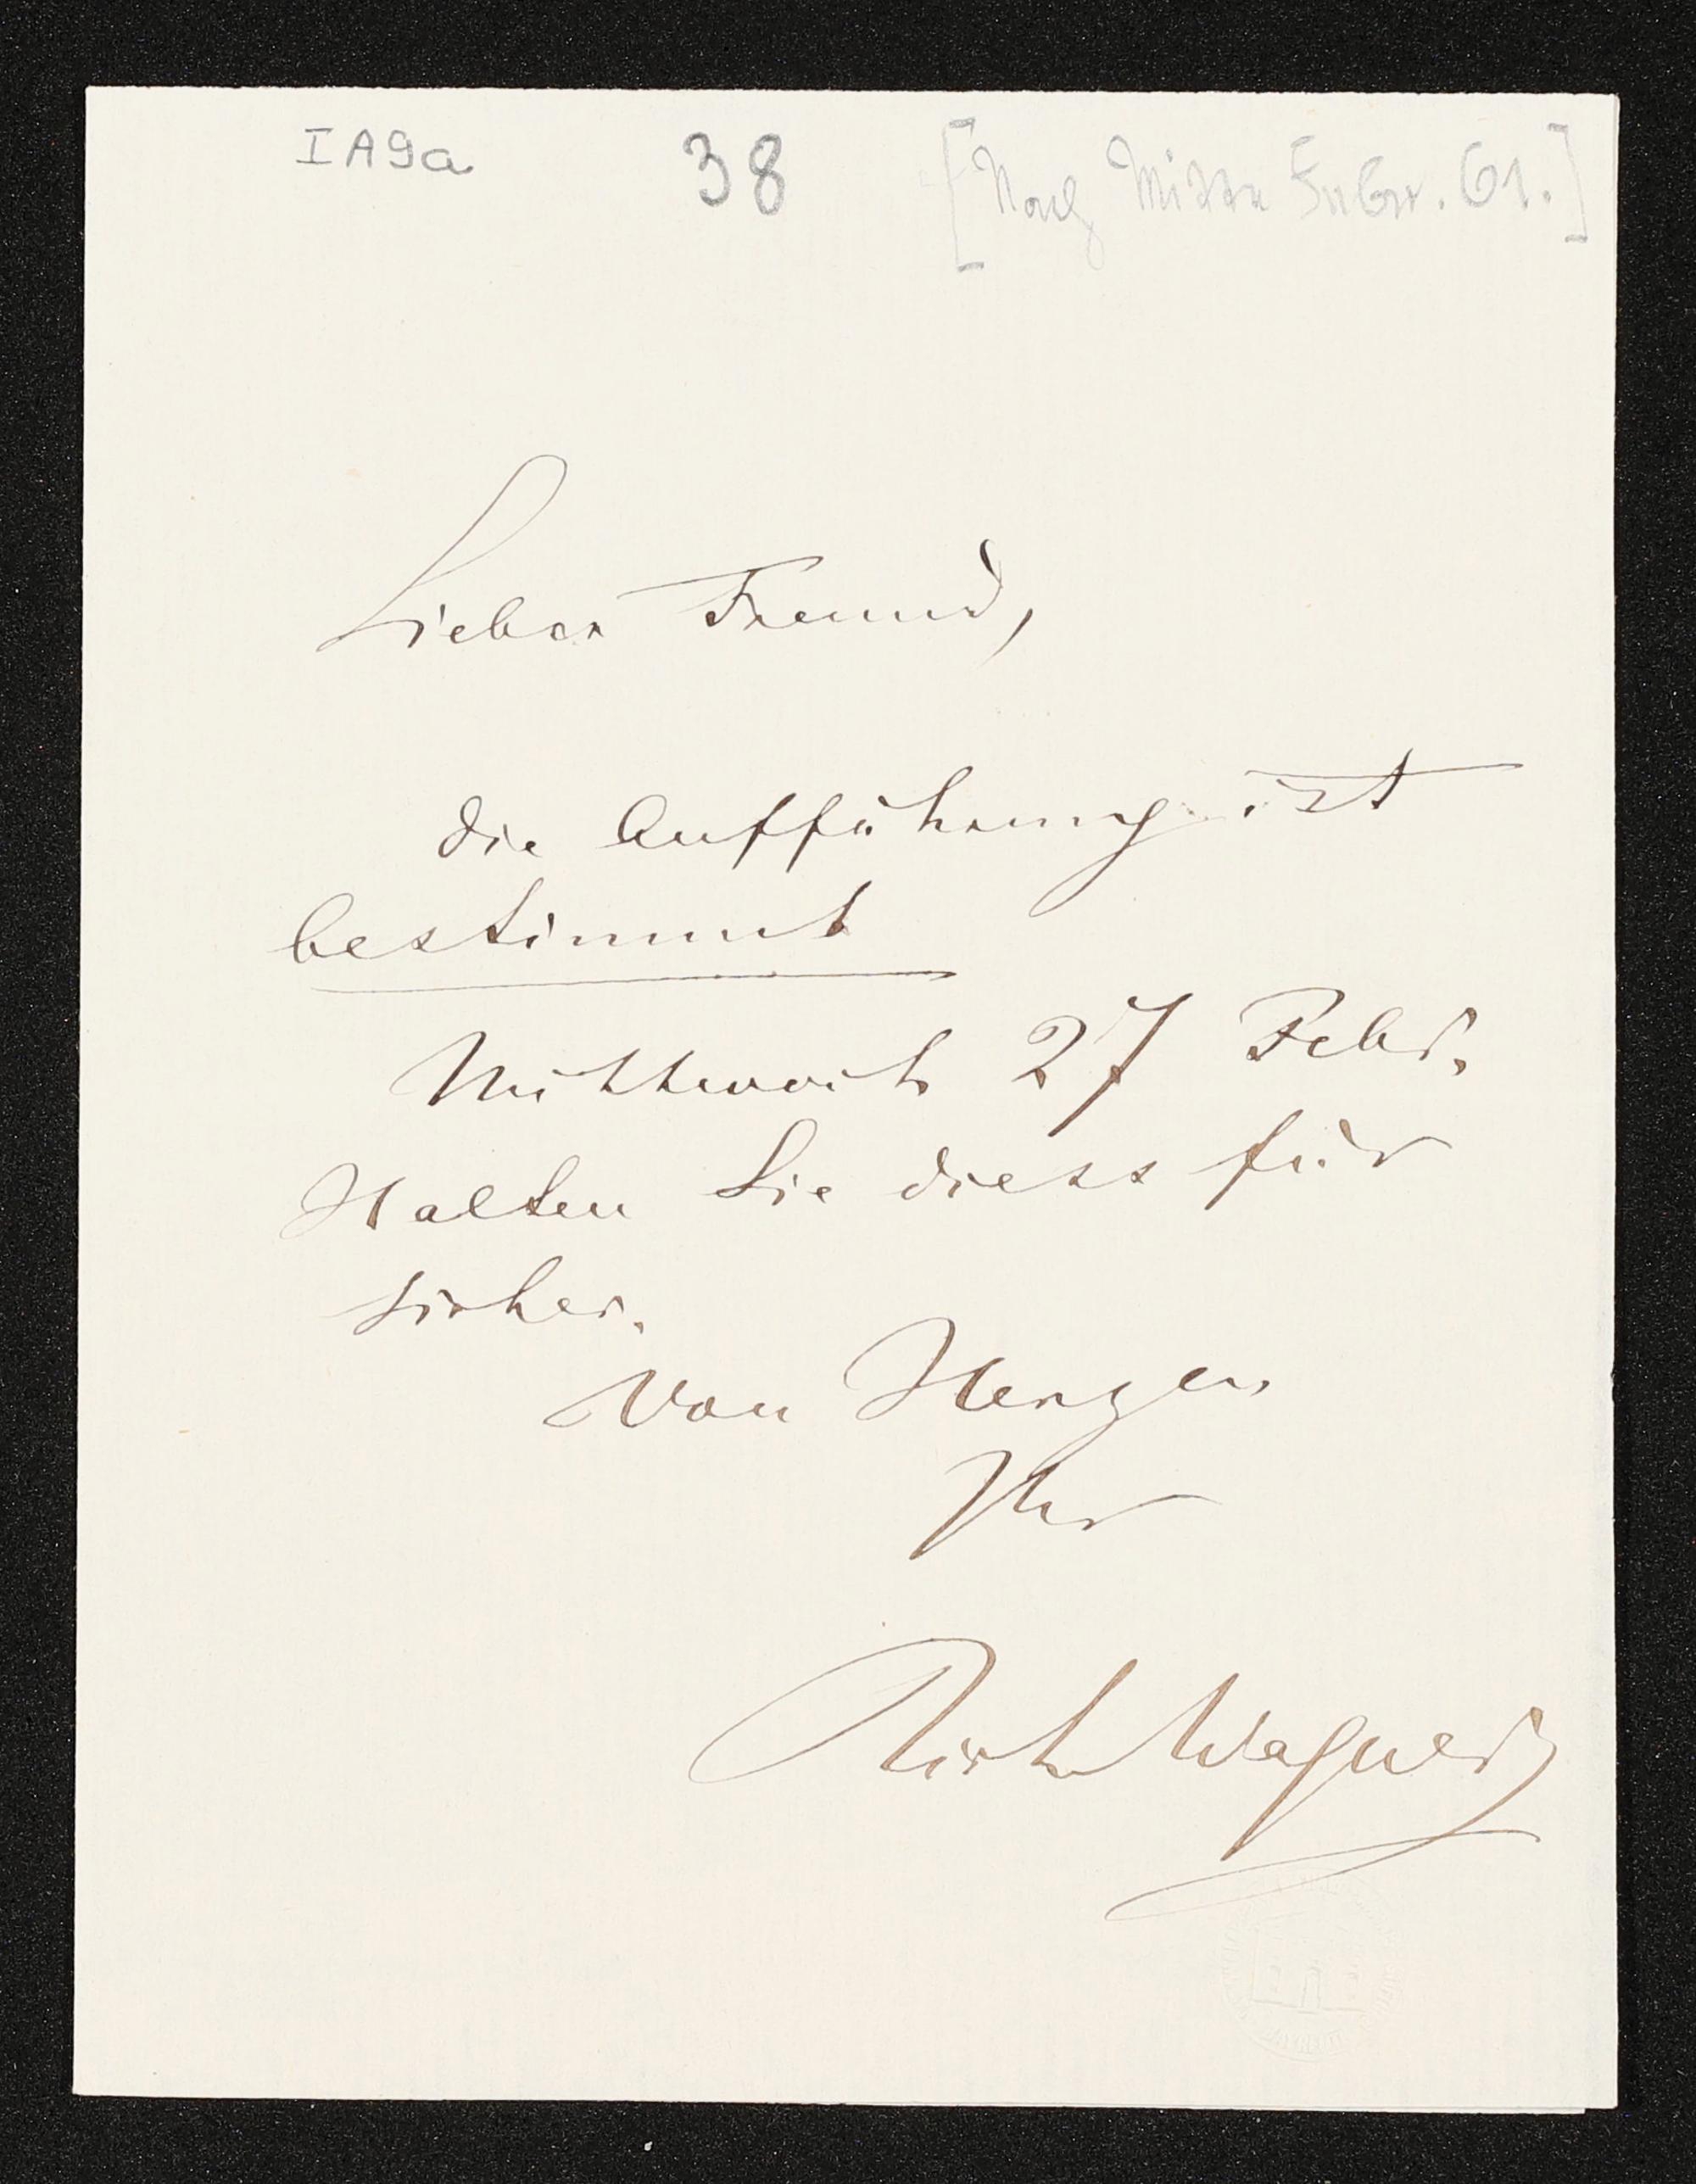 IA9a 38 [Nach Mitte Febr. 61.]
Lieber Freund,
die Aufführung ist
bestimmt
Mittwoch 27 Febr.
Halten Sie diess für
sicher.
Von Herzen
Ihr
Rich Wagner